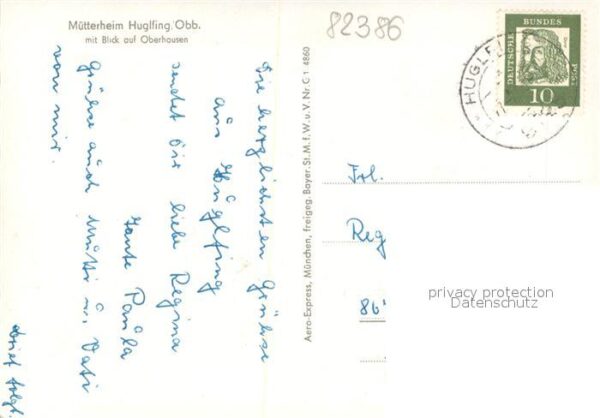 Mütterheim Huglfing/Obb.
mit Blick auf Oberhausen
82386
Die herzlichsten Grüsse
aus Huglfing
sendet Dir liebe Regina
Tante Paula
Grüsse auch Mutti u. Vati
von mir.
Brief folgt.
Aero-Express, München, freigeg. Bayer. St. M. f. W. u. V. Nr. C 1 4860
DEUTSCHE
BUNDES
POST
10
HUGLFING
Frl.
Reg
86
privacy protection
Datenschutz